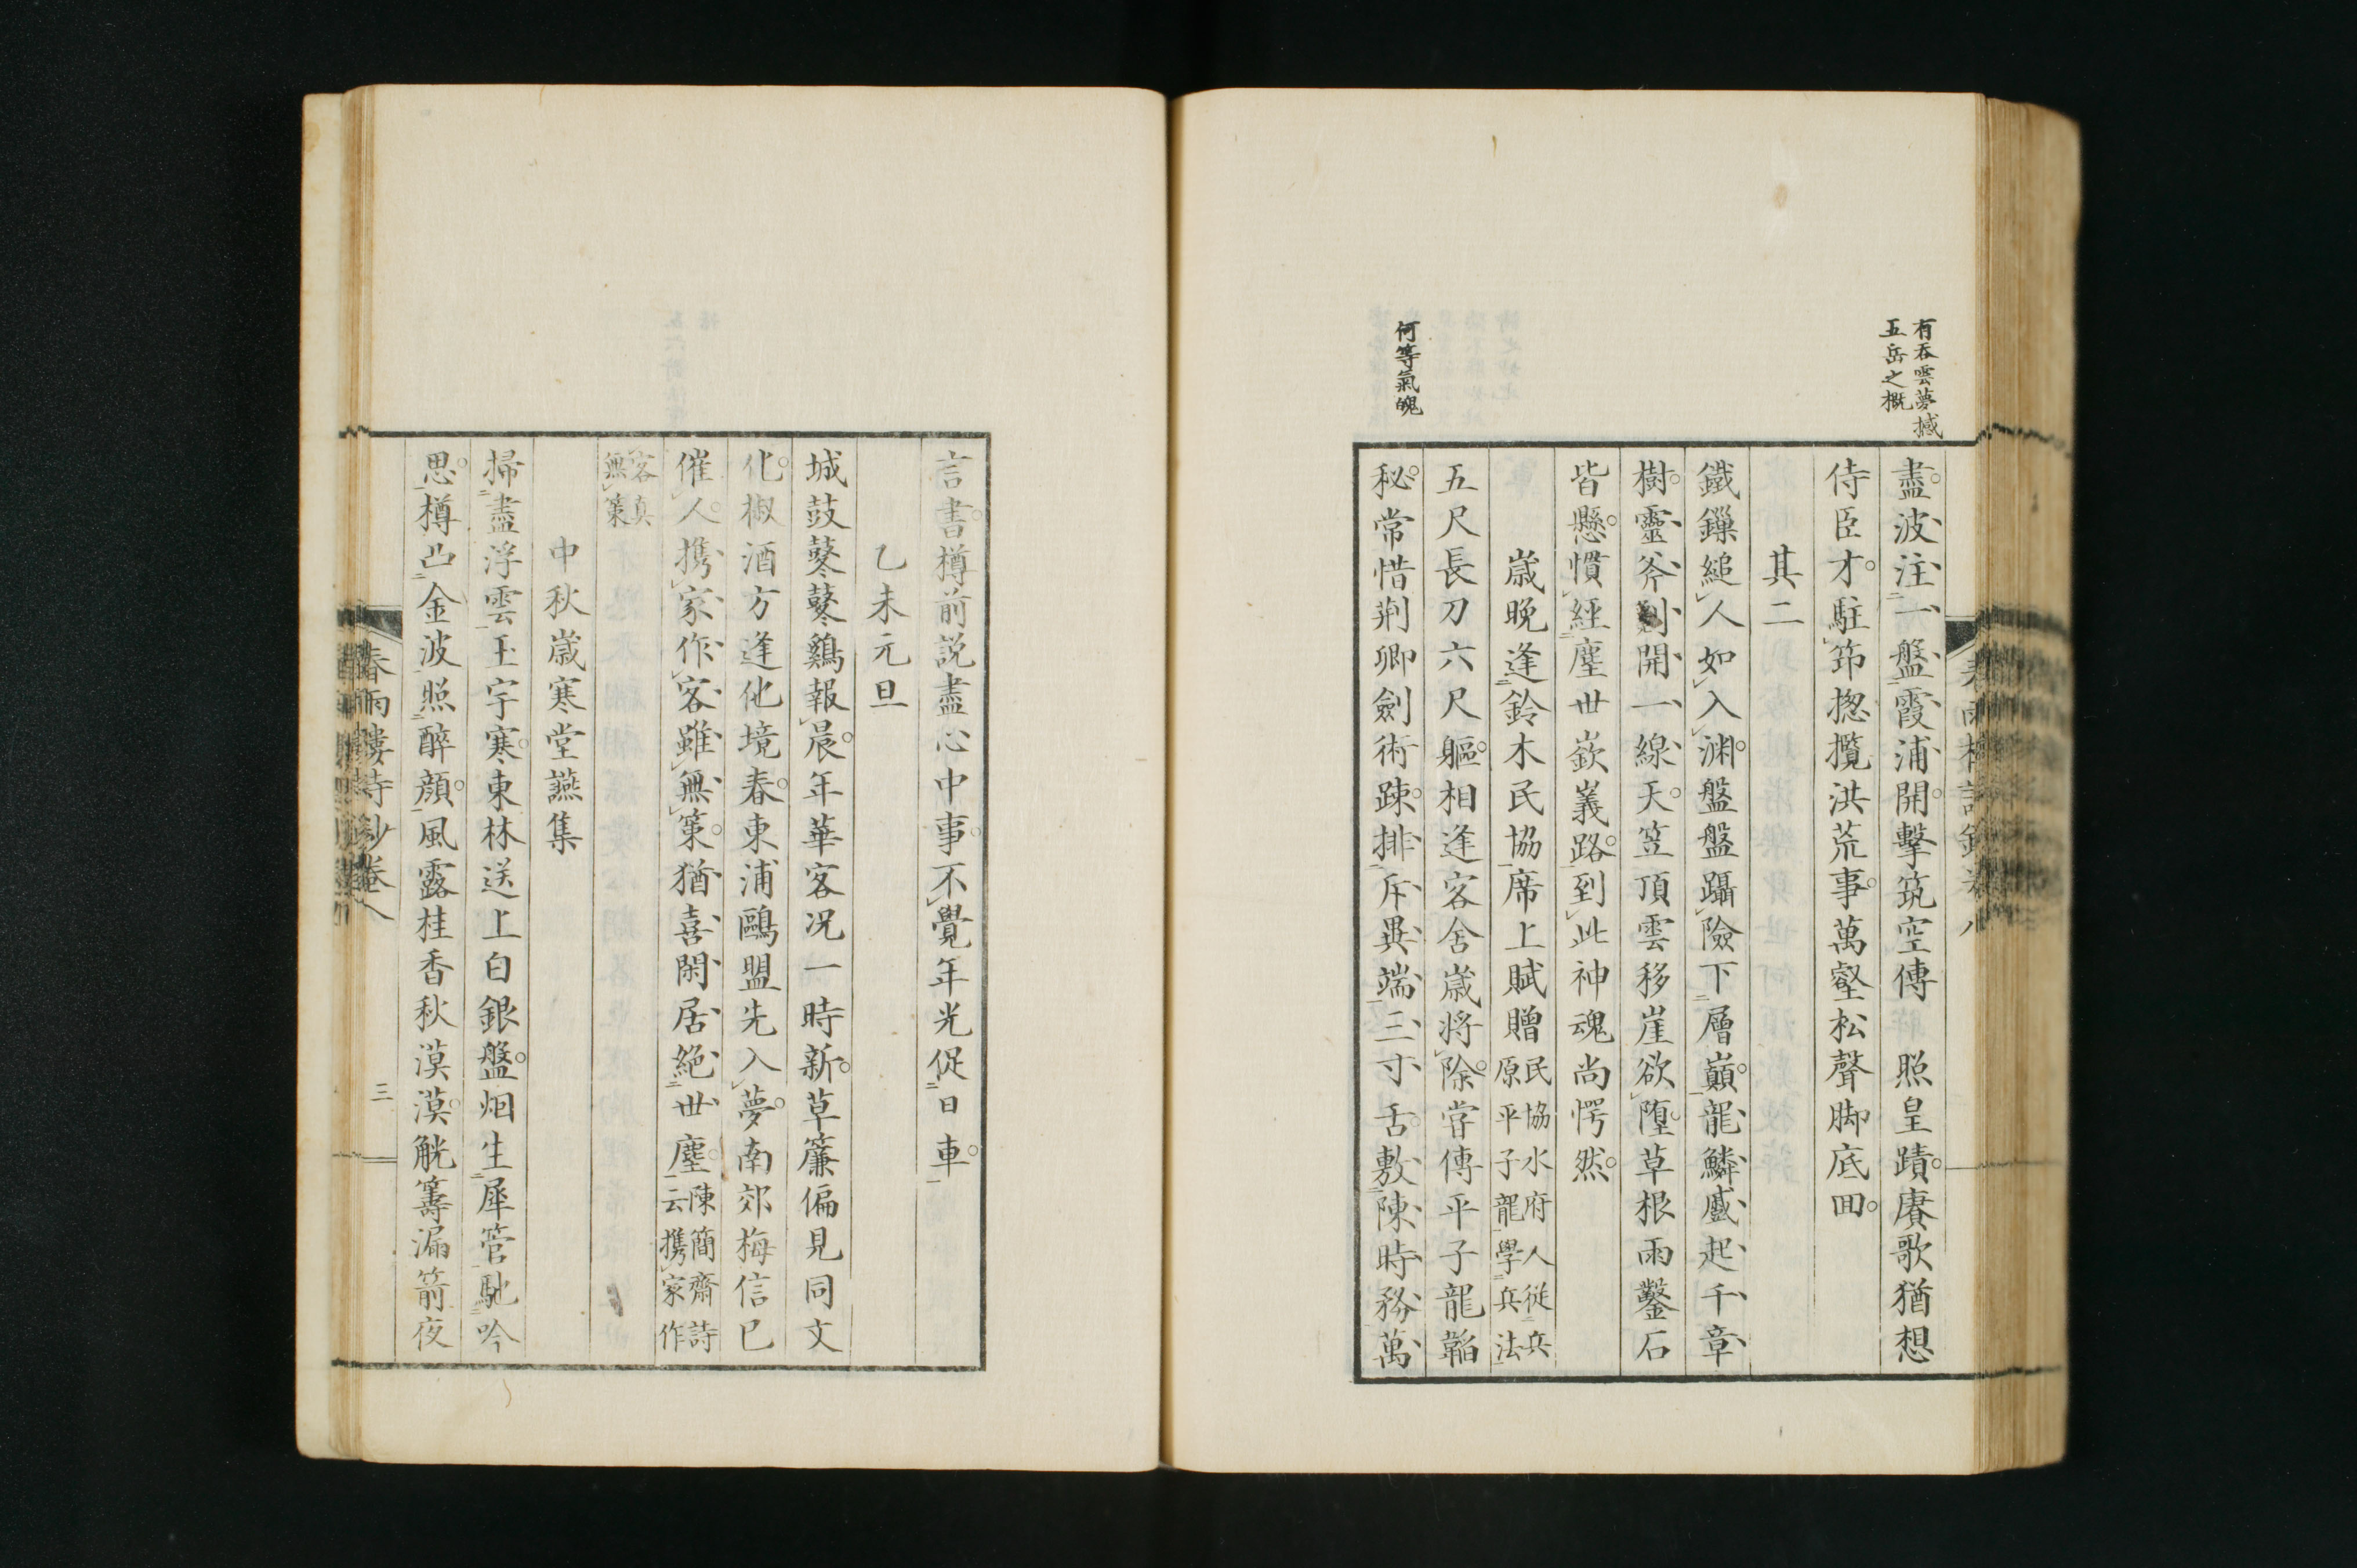 有吞雲夢撼
五岳之概
盡波注一盤霞浦開擊筑空傳　照皇蹟賡歌猶想
侍臣才駐笻揔攬洪荒事萬壑松聲脚底回
其二
鐵鏁縋人如入渊盤盤躡險下層巔龍鱗蹙起千章
樹靈斧劃開一線天笠頂雲移崖欲墮草根雨鑿石
皆懸慣經塵世嶔嶬路到此神魂尚愕然
歳晚逢鈴木民協席上賦贈民協水府人從兵
原平子龍學兵法
五尺長刀六尺軀相逢客舍歳將除嘗傳平子龍韜
秘常惜荆卿劍術踈排斥異端三寸舌敷陳時務萬
何等氣魄
言書樽前説盡心中事不覺年光促日車
乙未元旦
城鼓鼕鼕鷄報晨年華客况一時新草簾偏見同文
化椒酒方逢化境春東浦鷗盟先入夢南郊梅信已
催人携家作客雖無策猶喜閑居絶世塵陳簡齋詩
云携家作
客真
無策
中秋歳寒堂讌集
掃盡浮雲玉宇寒東林送上白銀盤烟生犀管馳吟
思樽凸金波照醉顔風露桂香秋漠漠觥籌漏箭夜
春雨樓詩鈔卷八
三